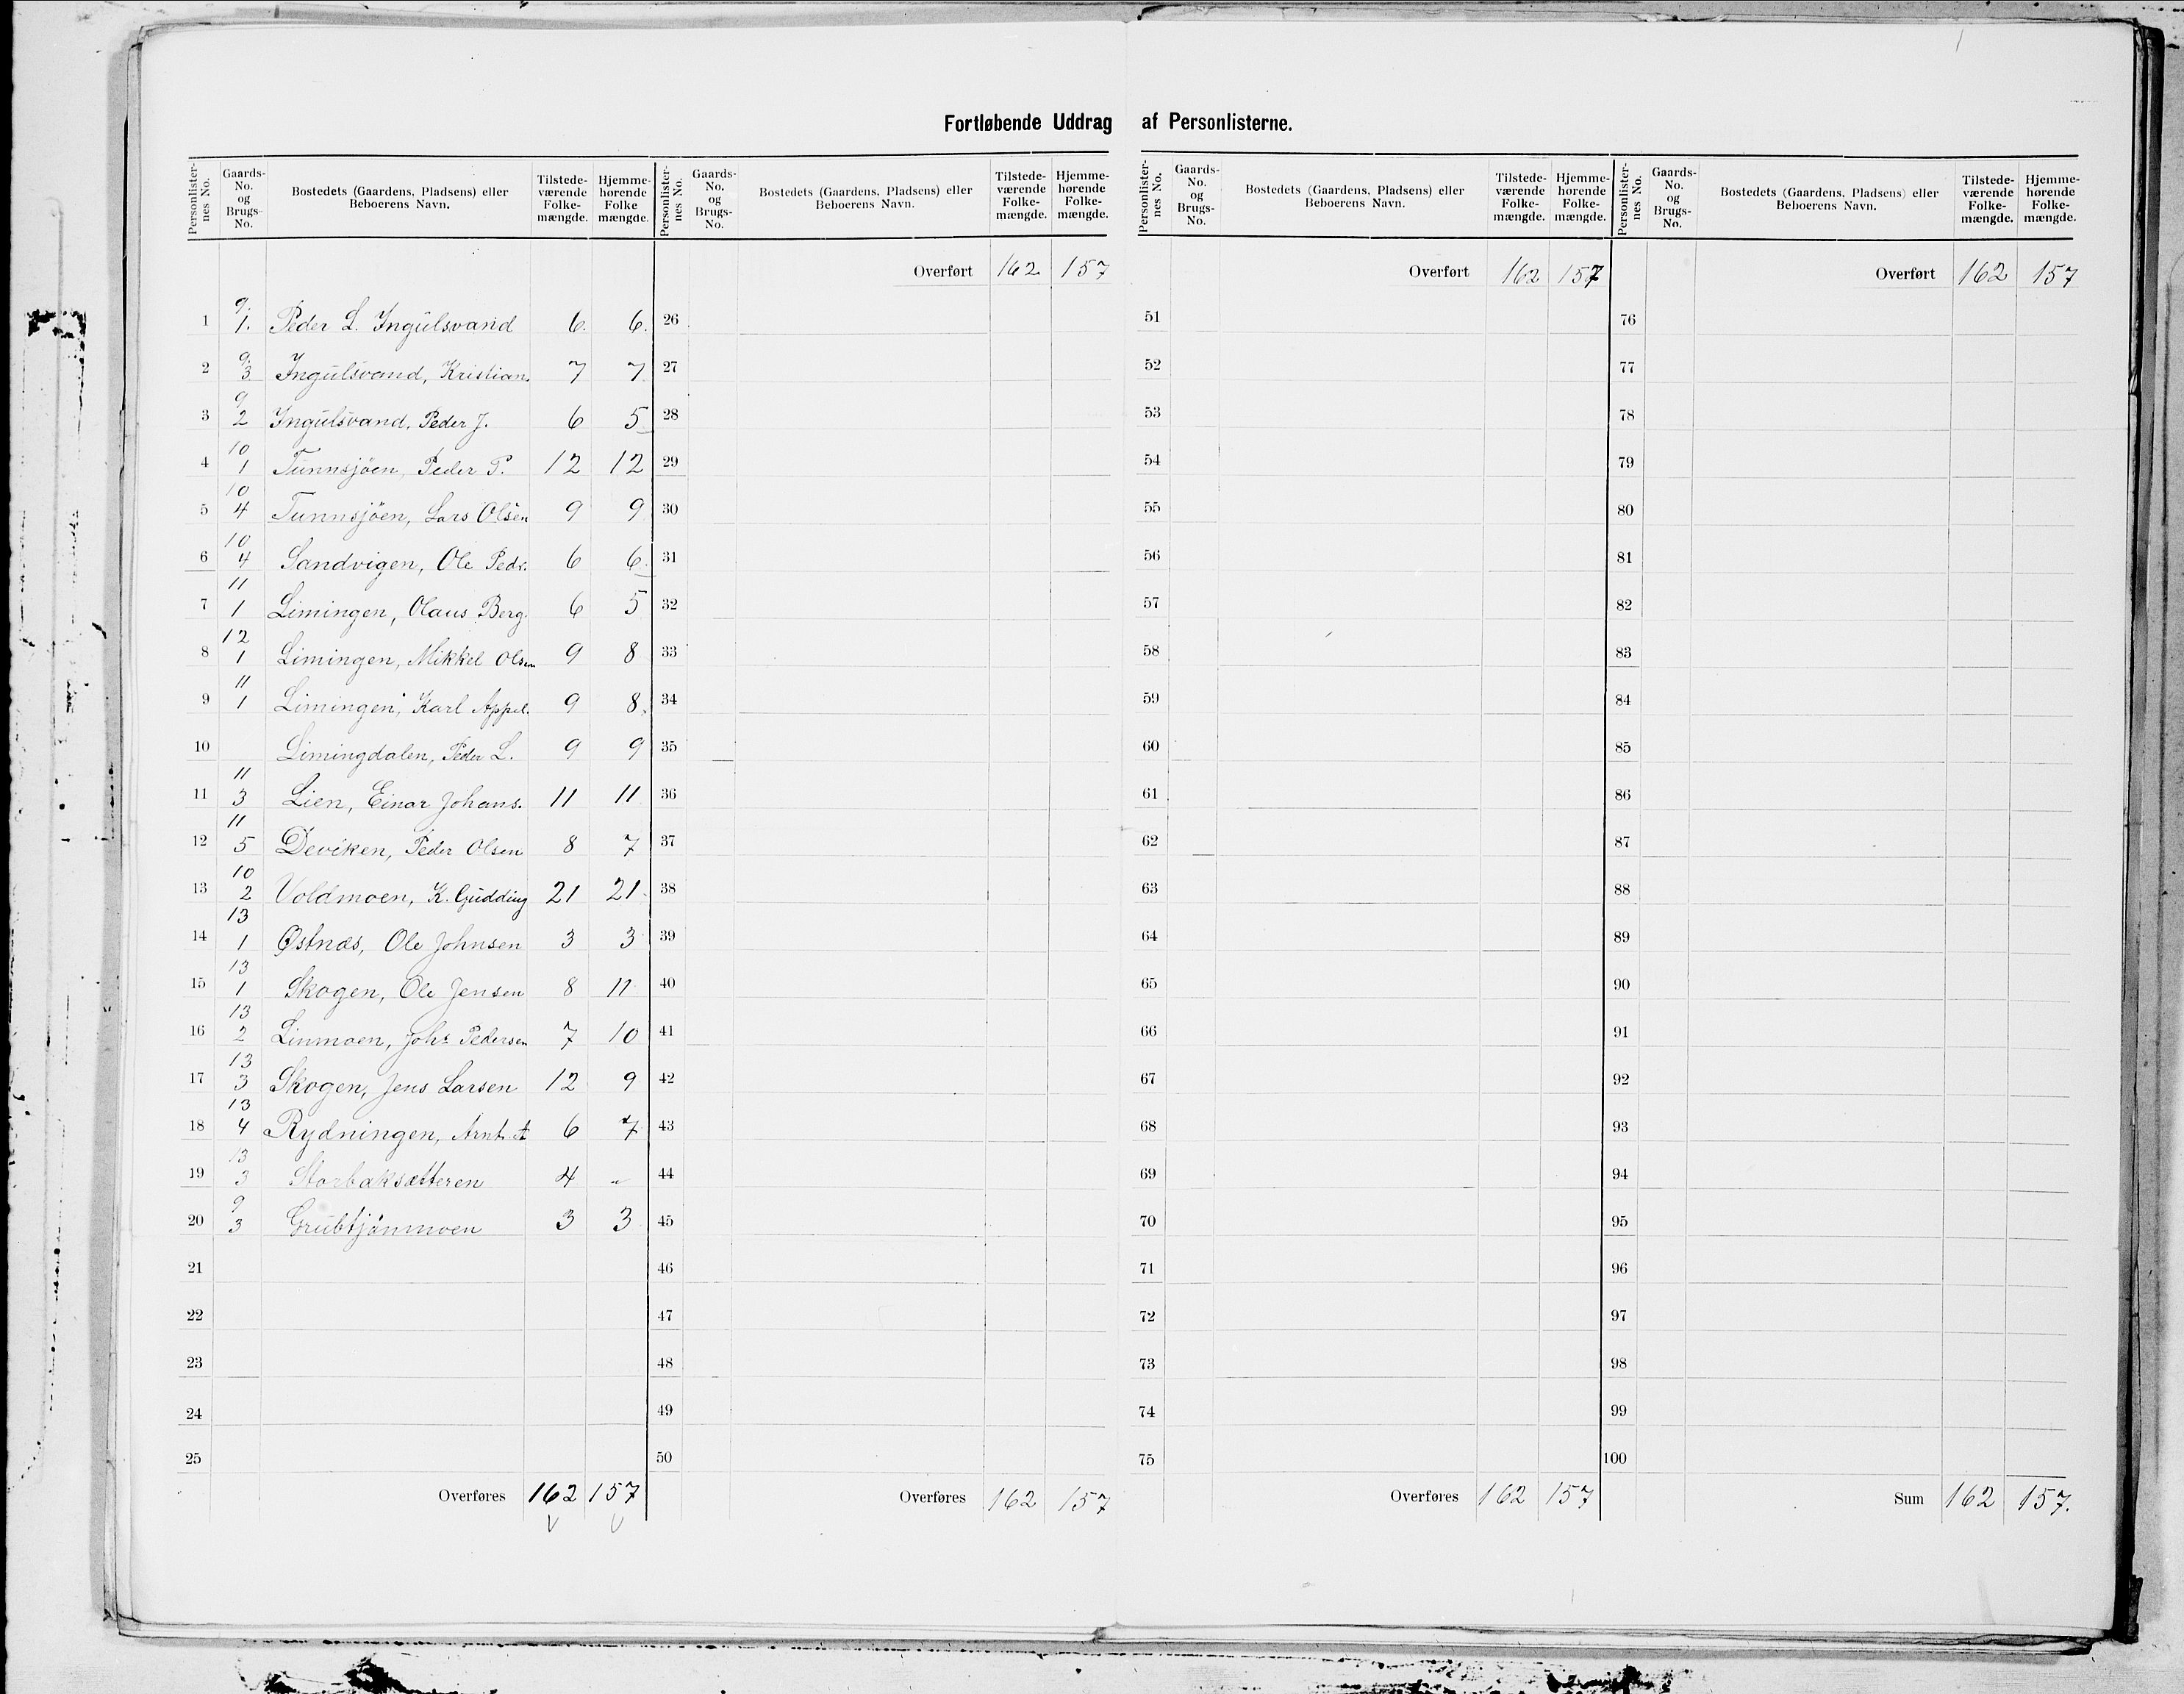 Fortløbende Uddrag af Personlisterne.
Personlister-nes No. Gaards-No. og Brugs-No. Bostedets (Gaardens, Pladsens) eller Beboerens Navn. Tilstede-værende Folke-mængde. Hjemme-hørende Folke mængde.
1 9. 1. Peder L. Ingulsvand 6. 6.
2 9. 3 Ingulsvand, Kristian. 7 7
3 9 2 Ingulsvand, Peder J. 6 5
4 10 1 Tunnsjöen, Peder P. 12 12
5 10 4 Tunnsjöen, Lars Olsen 9 9
6 10 4 Sandvigen, Ole Pedr. 6 6.
7 11 1 Limingen, Olaus Berg. 6 5
8 12 1 Limingen, Mikkel Olsen 9 8
9 11 1 Limingen, Karl Appel. 9 8.
10 Limingdalen, Peder L. 9 9
11 11 3 Lien, Einar Johans. 11 11
12 11 5 Deviken, Peder Olsen 8 7
13 10 2 Voldmoen, K. Gudding 21 21
14 13 1 Østnæs, Ole Johnsen 3 3
15 13 1 Skogen, Ole Jensen 8 11
16 13 2 Linmoen, Johs Pedersen 7 10
17 13 3 Skogen, Jens Larsen 12 9
18 13 4 Rydningen, Arnt. A 6 7
19 13 3 Storbaksætteren 4 "
20 9 3 Grubtjönmoen 3 3
21
22
23
24
25
Overføres 162 157
Personlister-nes No. Gaards-No. og Brugs-No. Bostedets (Gaardens, Pladsens) eller Beboerens Navn. Tilstede-værende Folke-mængde. Hjemme-hørende Folke-mængde.
Overført 162 157
26
27
28
29
30
31
32
33
34
35
36
37
38
39
40
41
42
43
44
45
46
47
48
49
50
Overføres 162 157
Personlister-nes No. Gaards-No. og Brugs-No. Bostedets (Gaardens, Pladsens) eller Beboerens Navn. Tilstede-værende Folke-mængde. Hjemme-hørende Folke-mængde.
Overført 162 157
51
52
53
54
55
56
57
58
59
60
61
62
63
64
65
66
67
68
69
70
71
72
73
74
75
Overføres 162 157
Personlister-nes No. Gaards-No. og Brugs-No. Bostedets (Gaardens, Pladsens) eller Beboerens Navn. Tilstede-værende Folke-mængde. Hjemme-hørende Folke-mængde.
Overført 162 157
76
77
78
79
80
81
82
83
84
85
86
87
88
89
90
91
92
93
94
95
96
97
98
99
100
Sum 162 157.